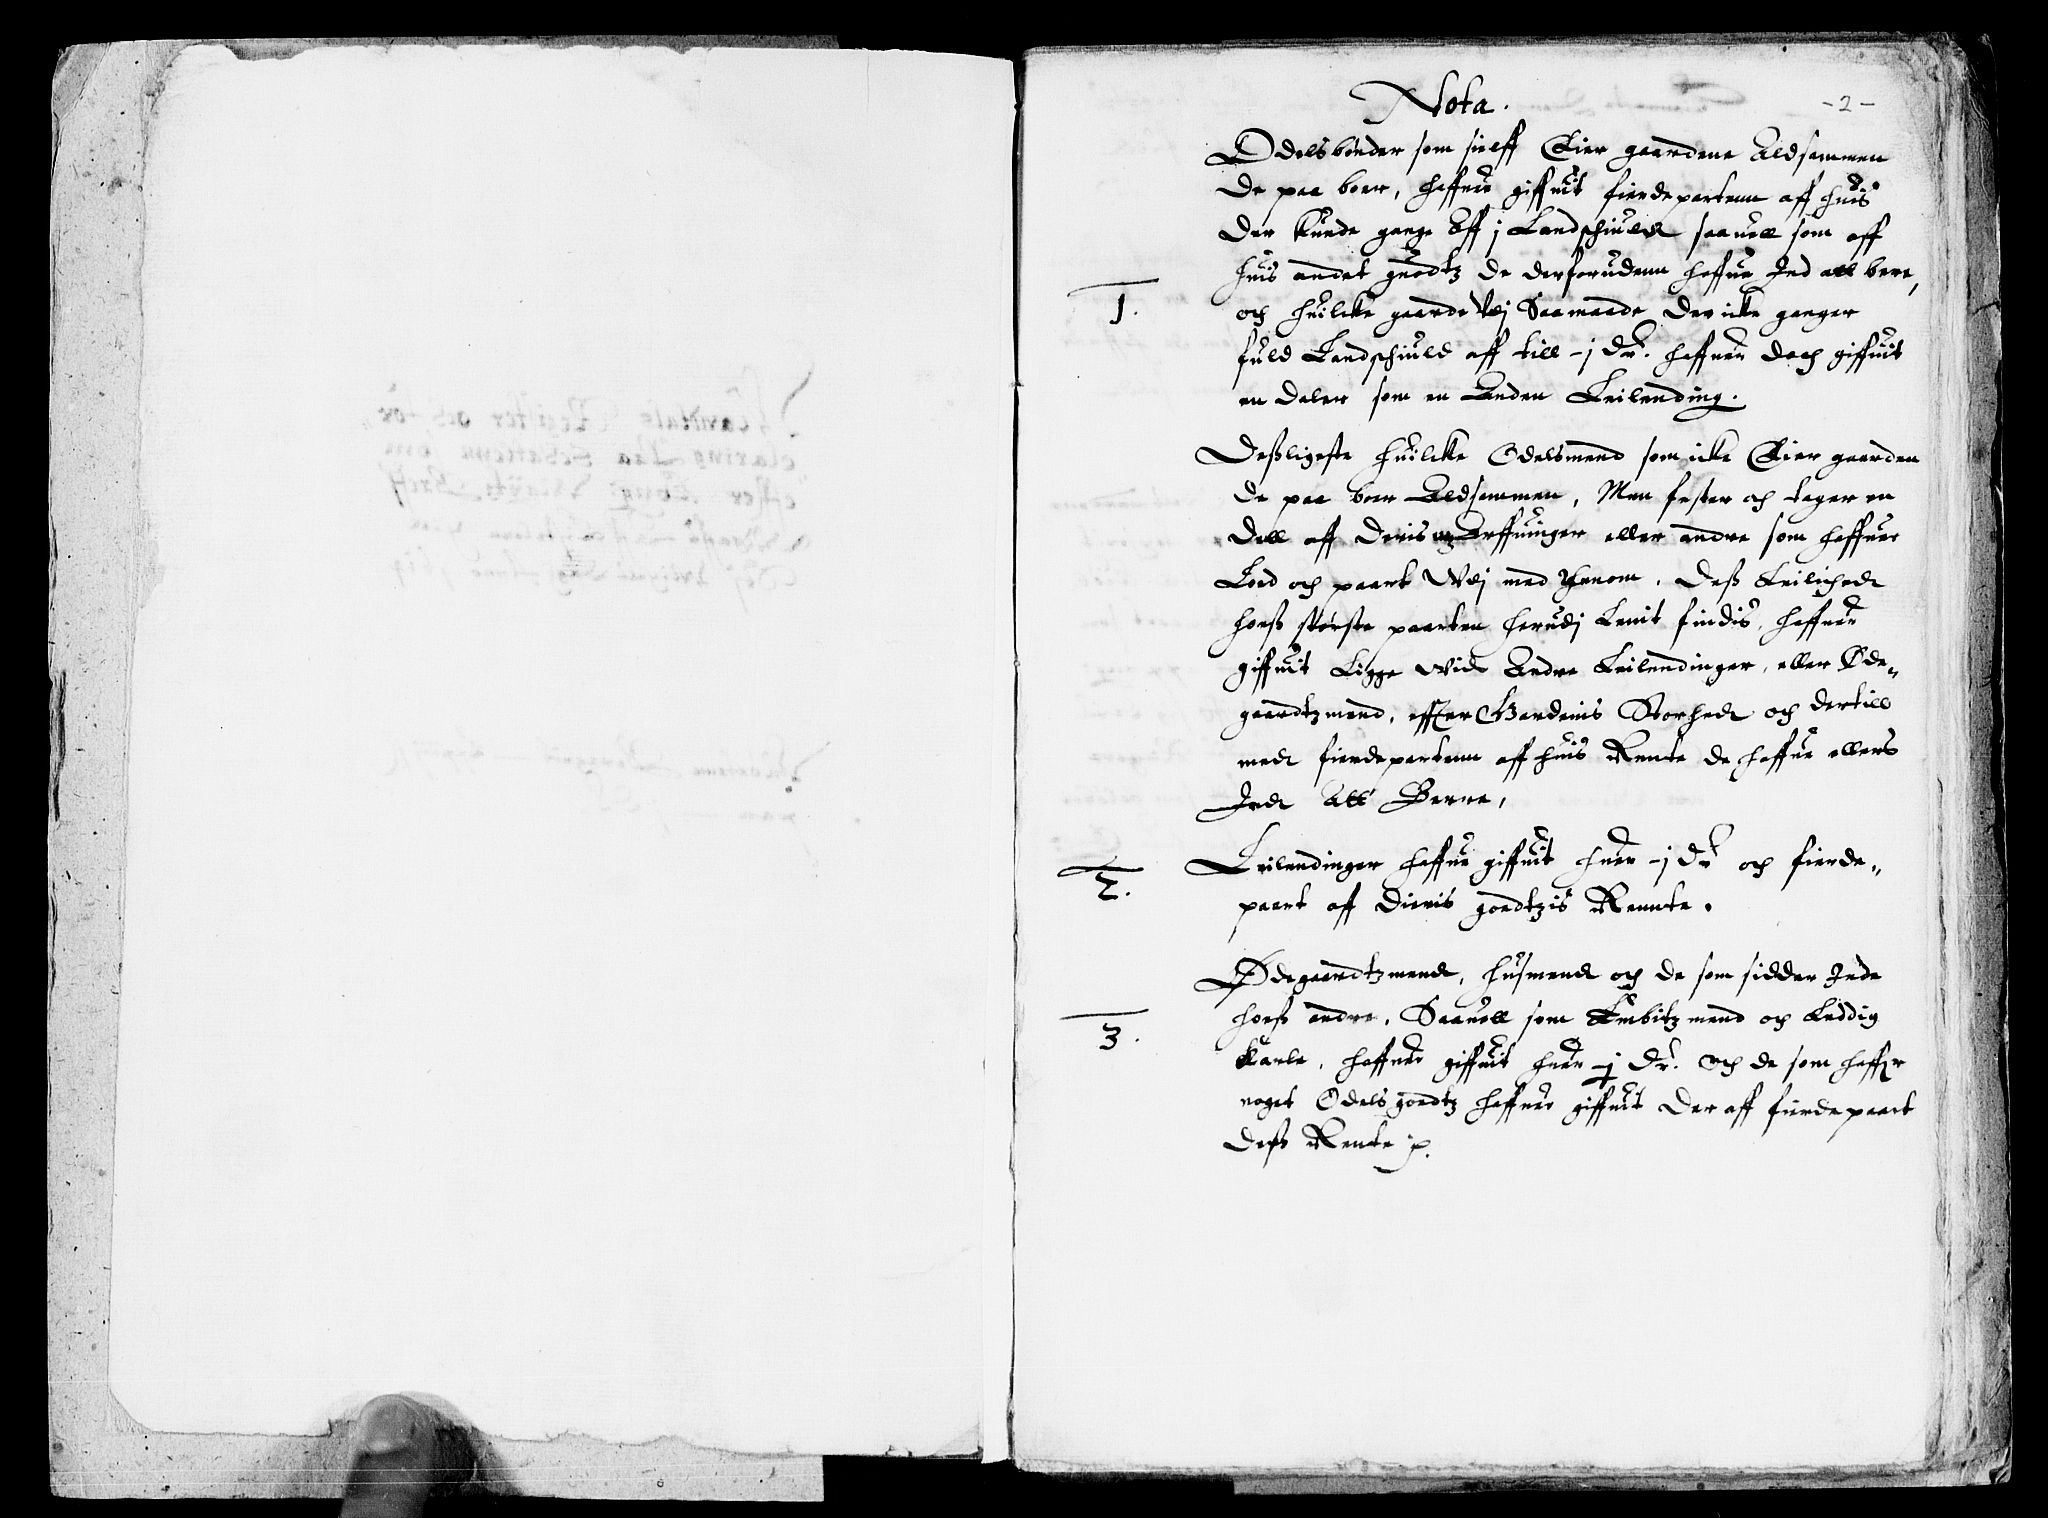 Nota.
- 2 -
Odelsbønder som sielff Eier gaardene Aldsammen
de paa boer, haffuer giffuit fierdepartenn aff huis
der kunde gange Aff j Landschiuld saauell som aff
huis andet guodtz de derforudenn haffue Ind att bere,
1.
och huilcke gaarde Wdj Saamaade der icke ganger
fuld Landschiuld aff till -j Dr. haffuer doch giffuit
en daler som en Anden Leilending.
Desligeste huilcke Odelsmend som icke Eier gaarden
de paa boer Aldsammen, Men fester och tager en
dell aff deris Arffuinger eller andre som haffuer
Lod och paart Wdj med henom. Deß Leilighed
hoeß største paarten herudj Lenit findis, haffuer
giffuit Ligge Wid Andre Leilendinger, eller Øde-
gaardtzmend, effter Gardenis Storhed och dertill
med fierdepartenn aff huis Rente de haffue ellers
Ind Att Berre,
2.
Leilendinger haffue giffuit huer -j Dr och fierde-
paart aff dieris goedtzis Rennte.
Ødegaardtzmend, husmend och de som sidder Inde
3.
hoeß andre, Saauell som Embitzmend och Leddig
karle, haffuer giffuit huer -j Dr. och de som haffer
noget Odelsgoedtz haffuer giffuit der aff fierdepaart
deß Rente p.